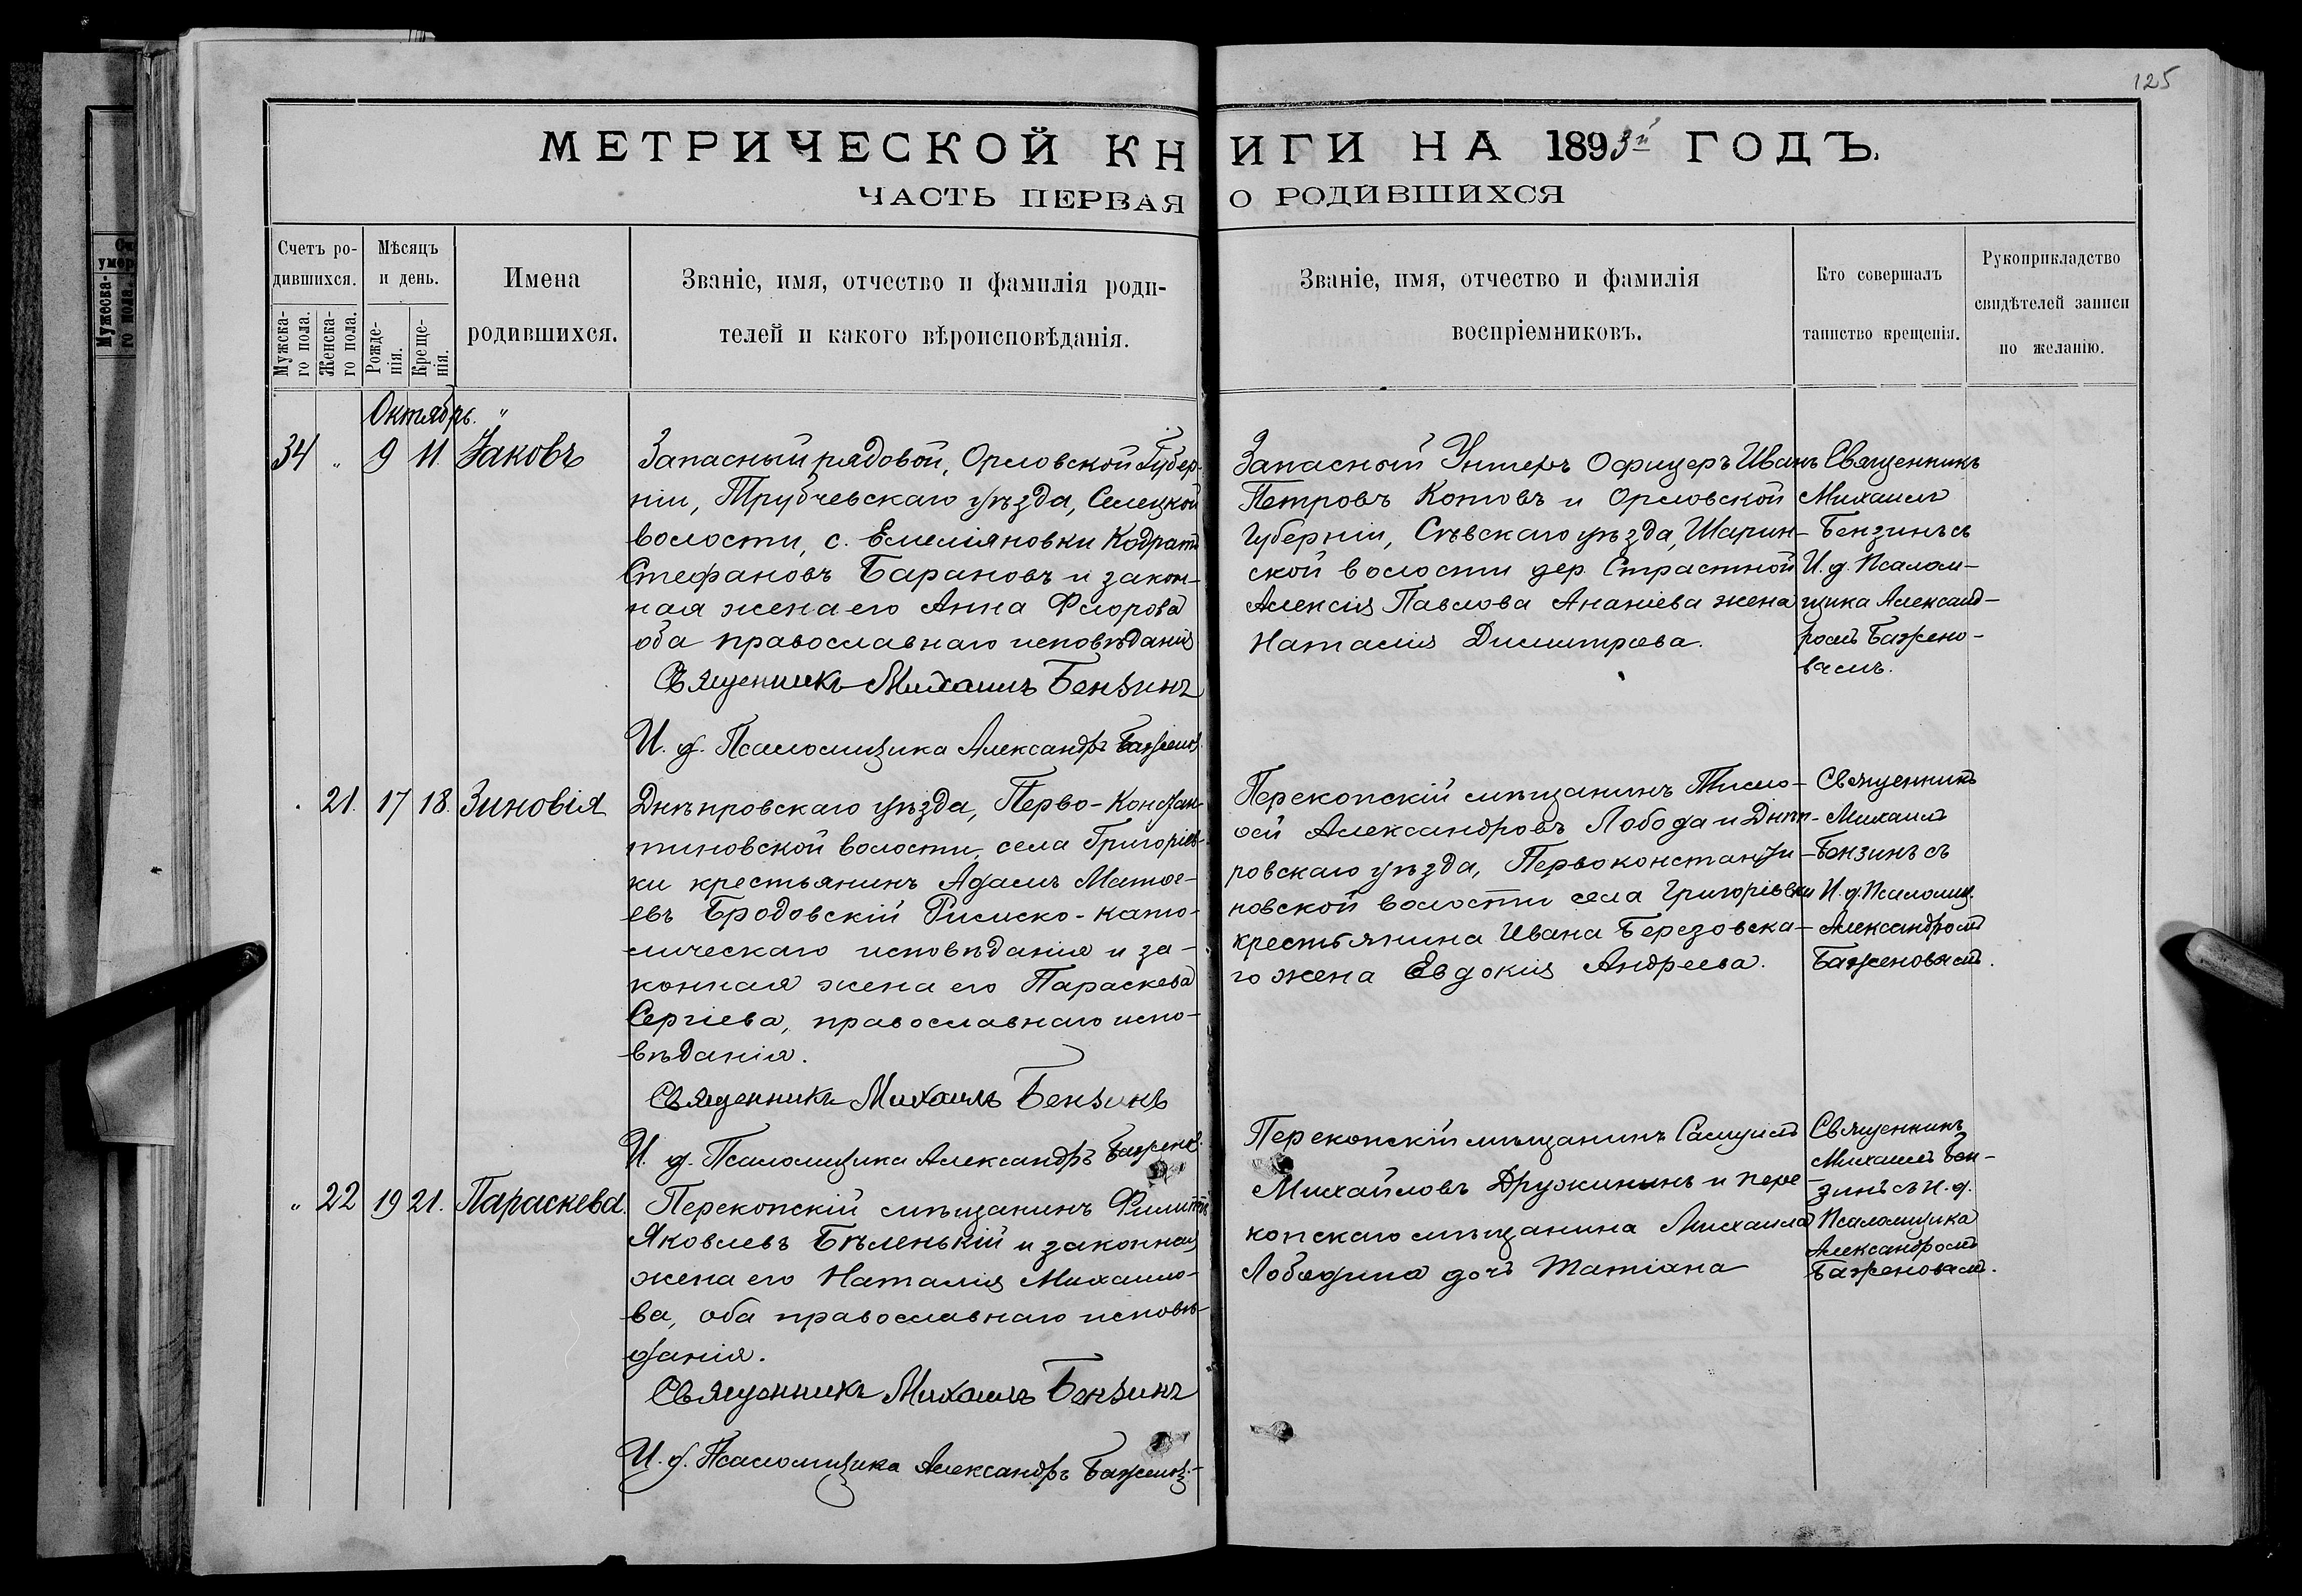 125
МЕТРИЧЕСКОЙ КНИГИ НА 1893й ГОДЪ.
ЧАСТЬ ПЕРВАЯ О РОДИВШИХСЯ
Счетъ ро-
дившихся.
Мужска-
го пола.
Женска-
го пола.
Мѣсяцъ
и день.
Рожде-
нія.
Креще-
нія.
Имена
родившихся.
Званіе, имя, отчество и фамилія роди-
телей и какого вѣроисповѣданія.
Званіе, имя, отчество и фамилія
воспріемниковъ.
Кто совершалъ
таинство крещенія.
Рукоприкладство
свидѣтелей записи
по желанію.
Октябрь. "
34 " 9 11. Іаковъ
Запасный рядовой, Орловской Губер-
ніи, Трубчевскаго уѣзда, Селецкой
волости, с. Емеліяновки Кодратъ
Стефановъ Барановъ и закон-
ная жена его Анна Фролова
оба православнаго исповѣданія
Священникъ Михаилъ Бензинъ
И. д. Псаломщика Александръ Баженов.
Запасный Унтеръ Офицеръ Иванъ
Петровъ Котовъ и Орловской
Губерніи, Сѣвскаго уѣзда, Шарин-
ской волости дер. Страстной
Алексія Павлова Ананіева жена
Наталія Димитріева.
Священникъ
Михаилъ
Бензинъ съ
И. д. Псалом-
щика Александ-
ромъ Бажено-
вымъ.
. 21. 17 18. Зиновія
Днѣпровскаго уѣзда, Перво-Констан-
тиновской волости, села Григорьев-
ки крестьянинъ Адамъ Матѳе-
евъ Бродовскій Римско-като-
лическаго исповѣданія и за-
конная жена его Параскева
Сергіева, православнаго испо-
вѣданія.
Священникъ Михаилъ Бензинъ
И. д. Псаломщика Александръ Баженов.
Перекопскій мѣщанинъ Тимо-
ѳей Александровъ Лобода и Днѣп-
ровскаго уѣзда, Первоконстанти-
новской волости села Григорьевки
крестьянина Ивана Березовска-
го жена Евдокія Андреева.
Священникъ
Михаилъ
Бензинъ съ
И. д. Псаломщ.
Александромъ
Баженовымъ.
" 22 19 21. Параскева.
Перекопскій мѣщанинъ Филиппъ
Яковлевъ Бѣленькій и законная
жена его Наталія Михаило-
ва, оба православнаго исповѣ-
данія.
Священникъ Михаилъ Бензинъ
И. д. Псаломщика Александръ Баженов.
Перекопскій мѣщанинъ Самуилъ
Михайловъ Дружининъ и пере-
копскаго мѣщанина Михаила
Лободина дочь Татіана
Священникъ
Михаилъ Бен-
зинъ съ И. д.
Псаломщика
Александромъ
Баженовымъ.